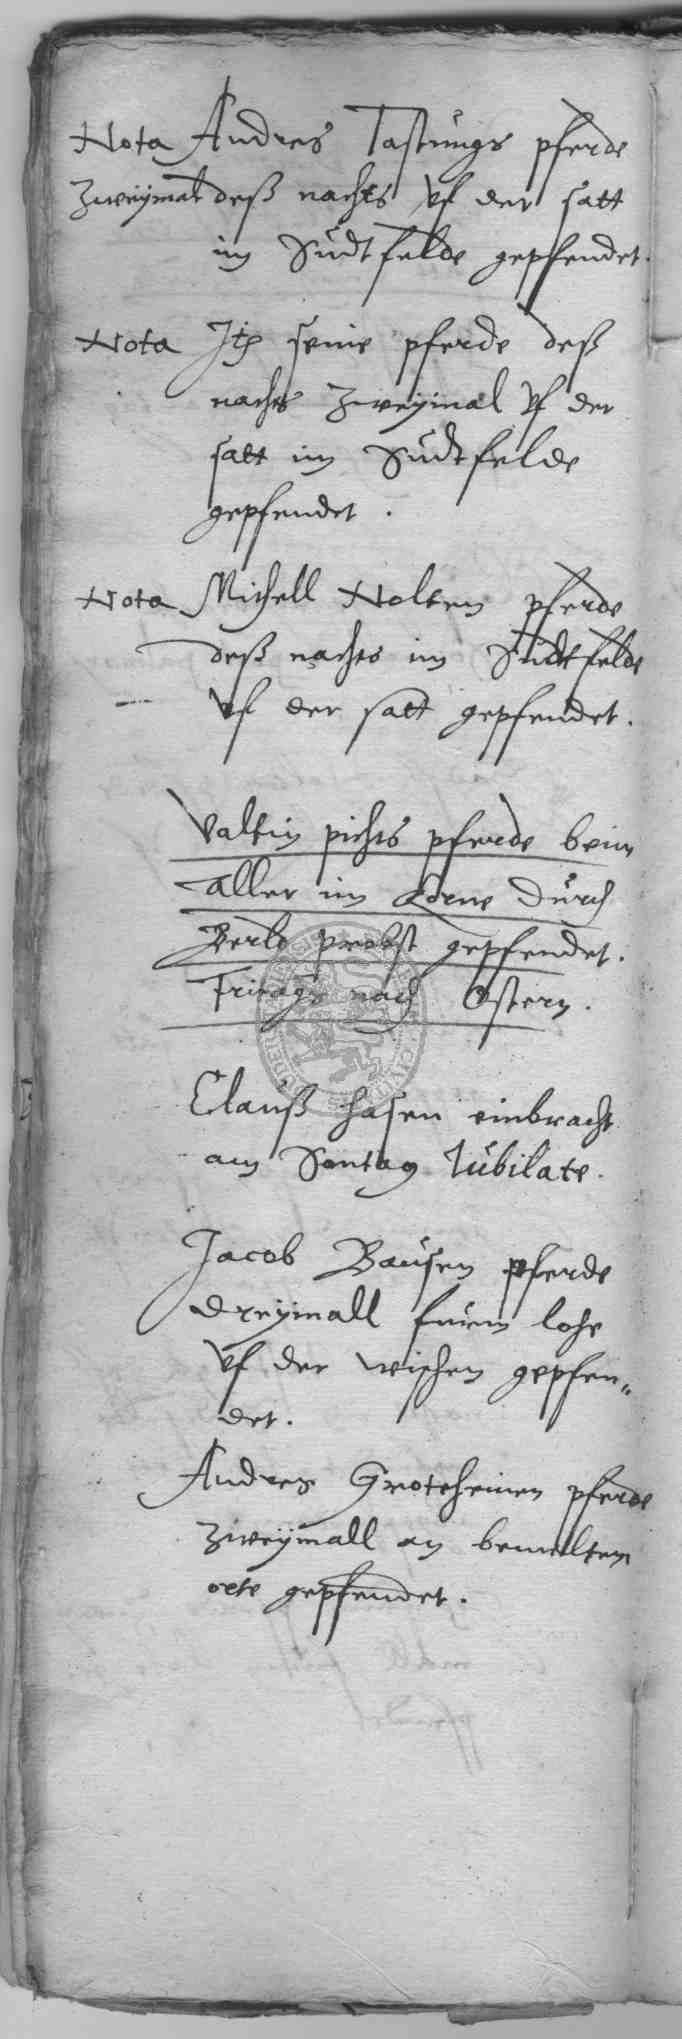 Nota Andres Tastungs pferde
Zweymal deß nachts vf der satt
im Sudtfelde gepfendet.
Nota Ite seine pferde deß
nachts Zweymal vf der
satt im Sudtfelde
gepfendet.
Nota Michell Nolten pferde
deß nachts im Sudtfelde
vf der satt gepfendet.
Valtin pichts pferde beim
Aller im Korne durch
probst gepfendet.
Fritags nach Ostern.
Clauß hasen einbracht
am Sontag Jubilate.
Jacob Bausen pferde
dreymall fürm lohe
vf der wischen gepfen„
det.
Andres Grotheinen pferde
Zweymall an bemelten
orte gepfendet.